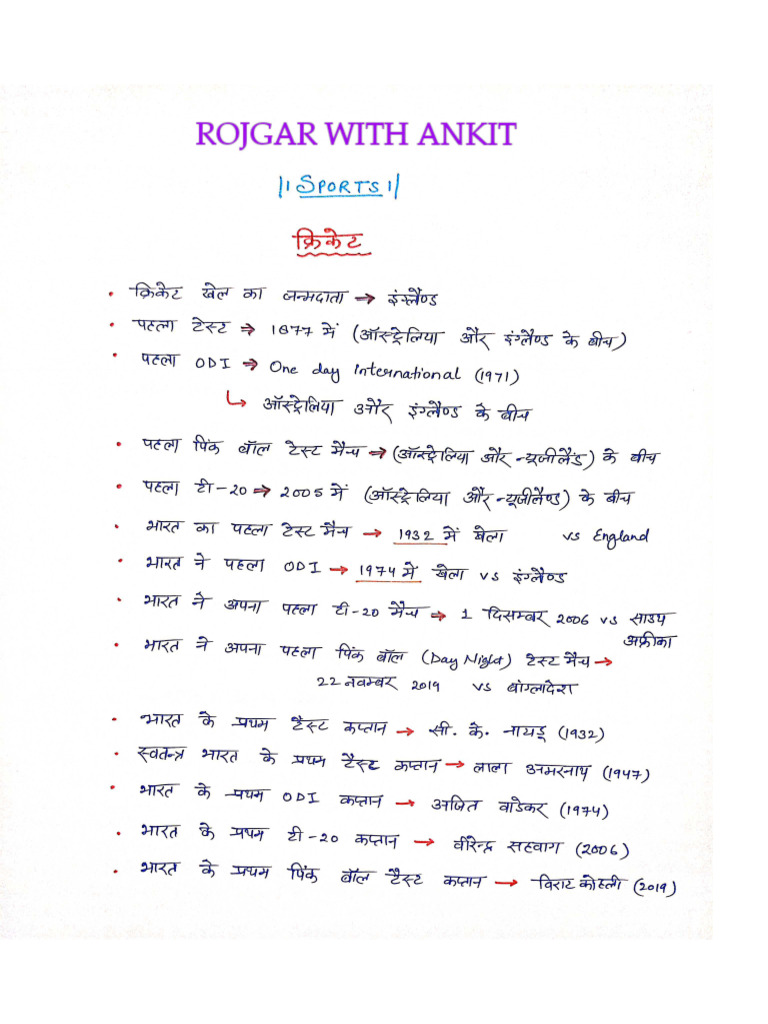 ROJGAR WITH ANKIT
||SPORTS||
क्रिकेट
• क्रिकेट खेल का जन्मदाता ⇒ इंग्लैण्ड
• पहला टेस्ट ⇒ 1877 में (ऑस्ट्रेलिया और इंग्लैण्ड के बीच)
• पहला ODI ⇒ One day International (1971)
↳ ऑस्ट्रेलिया और इंग्लैण्ड के बीच
• पहला पिंक बॉल टेस्ट मैच ⇒ (ऑस्ट्रेलिया और न्यूजीलैंड) के बीच
• पहला टी-20 ⇒ 2005 में (ऑस्ट्रेलिया और न्यूजीलैण्ड) के बीच
• भारत का पहला टेस्ट मैच → 1932 में खेला vs England
• भारत ने पहला ODI → 1974 में खेला vs इंग्लैण्ड
• भारत ने अपना पहला टी-20 मैच ⇒ 1 दिसम्बर 2006 vs साउथ
अफ्रीका
• भारत ने अपना पहला पिंक बॉल (Day Night) टेस्ट मैच →
22 नवम्बर 2019 vs बांग्लादेश
• भारत के प्रथम टैस्ट कप्तान → सी. के. नायडू (1932)
• स्वतन्त्र भारत के प्रथम टैस्ट कप्तान → लाला अमरनाथ (1947)
• भारत के प्रथम ODI कप्तान → अजित वाडेकर (1974)
• भारत के प्रथम टी-20 कप्तान → वीरेन्द्र सहवाग (2006)
• भारत के प्रथम पिंक बॉल टैस्ट कप्तान → विराट कोहली (2019)